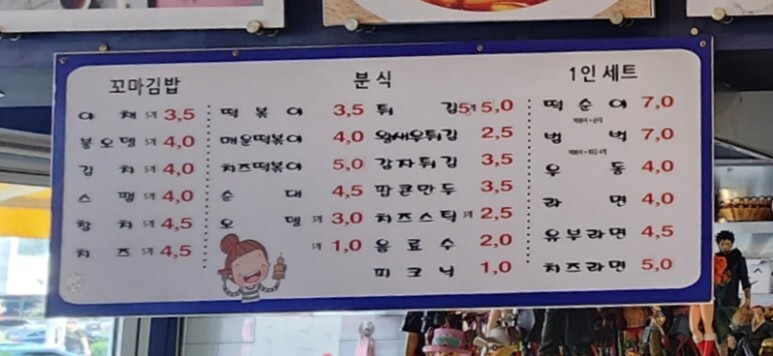 꼬마김밥
야 채 5개 3,5
봉오뎅 5개 4,0
김 치 5개 4,0
스 팸 5개 4,0
참 치 5개 4,5
치 즈 5개 4,5
분식
떡 볶 이 3,5
매운떡볶이 4,0
치즈떡볶이 5,0
순 대 4,5
오 뎅 5개 3,0
1개 1,0
튀 김 5개 5,0
왕새우튀김 2,5
감자튀김 3,5
팝콘만두 3,5
치즈스틱 3개 2,5
음료수 2,0
피크닉 1,0
1인세트
떡순이 7,0
떡볶이+순대
범 벅 7,0
우 동 4,0
라 면 4,0
유부라면 4,5
치즈라면 5,0